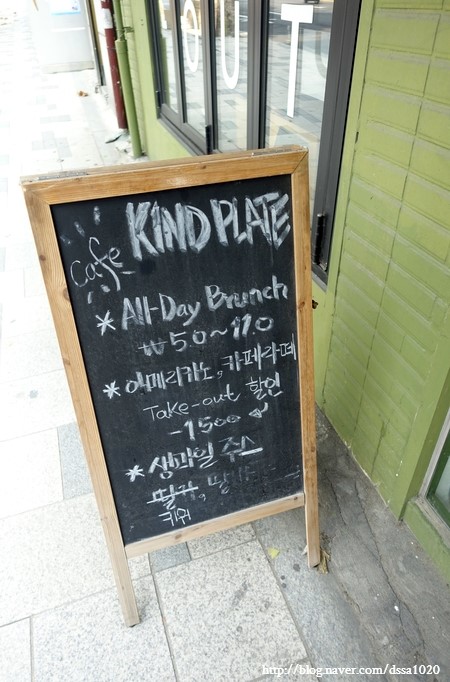 OUT
cafe KIND PLATE
* All-Day Brunch
₩ 5.0 ~ 11.0
* 아메리카노, 카페라떼
Take-out 할인
-1500
* 생과일 주스
딸기,
키위
http://blog.naver.com/dssa1020